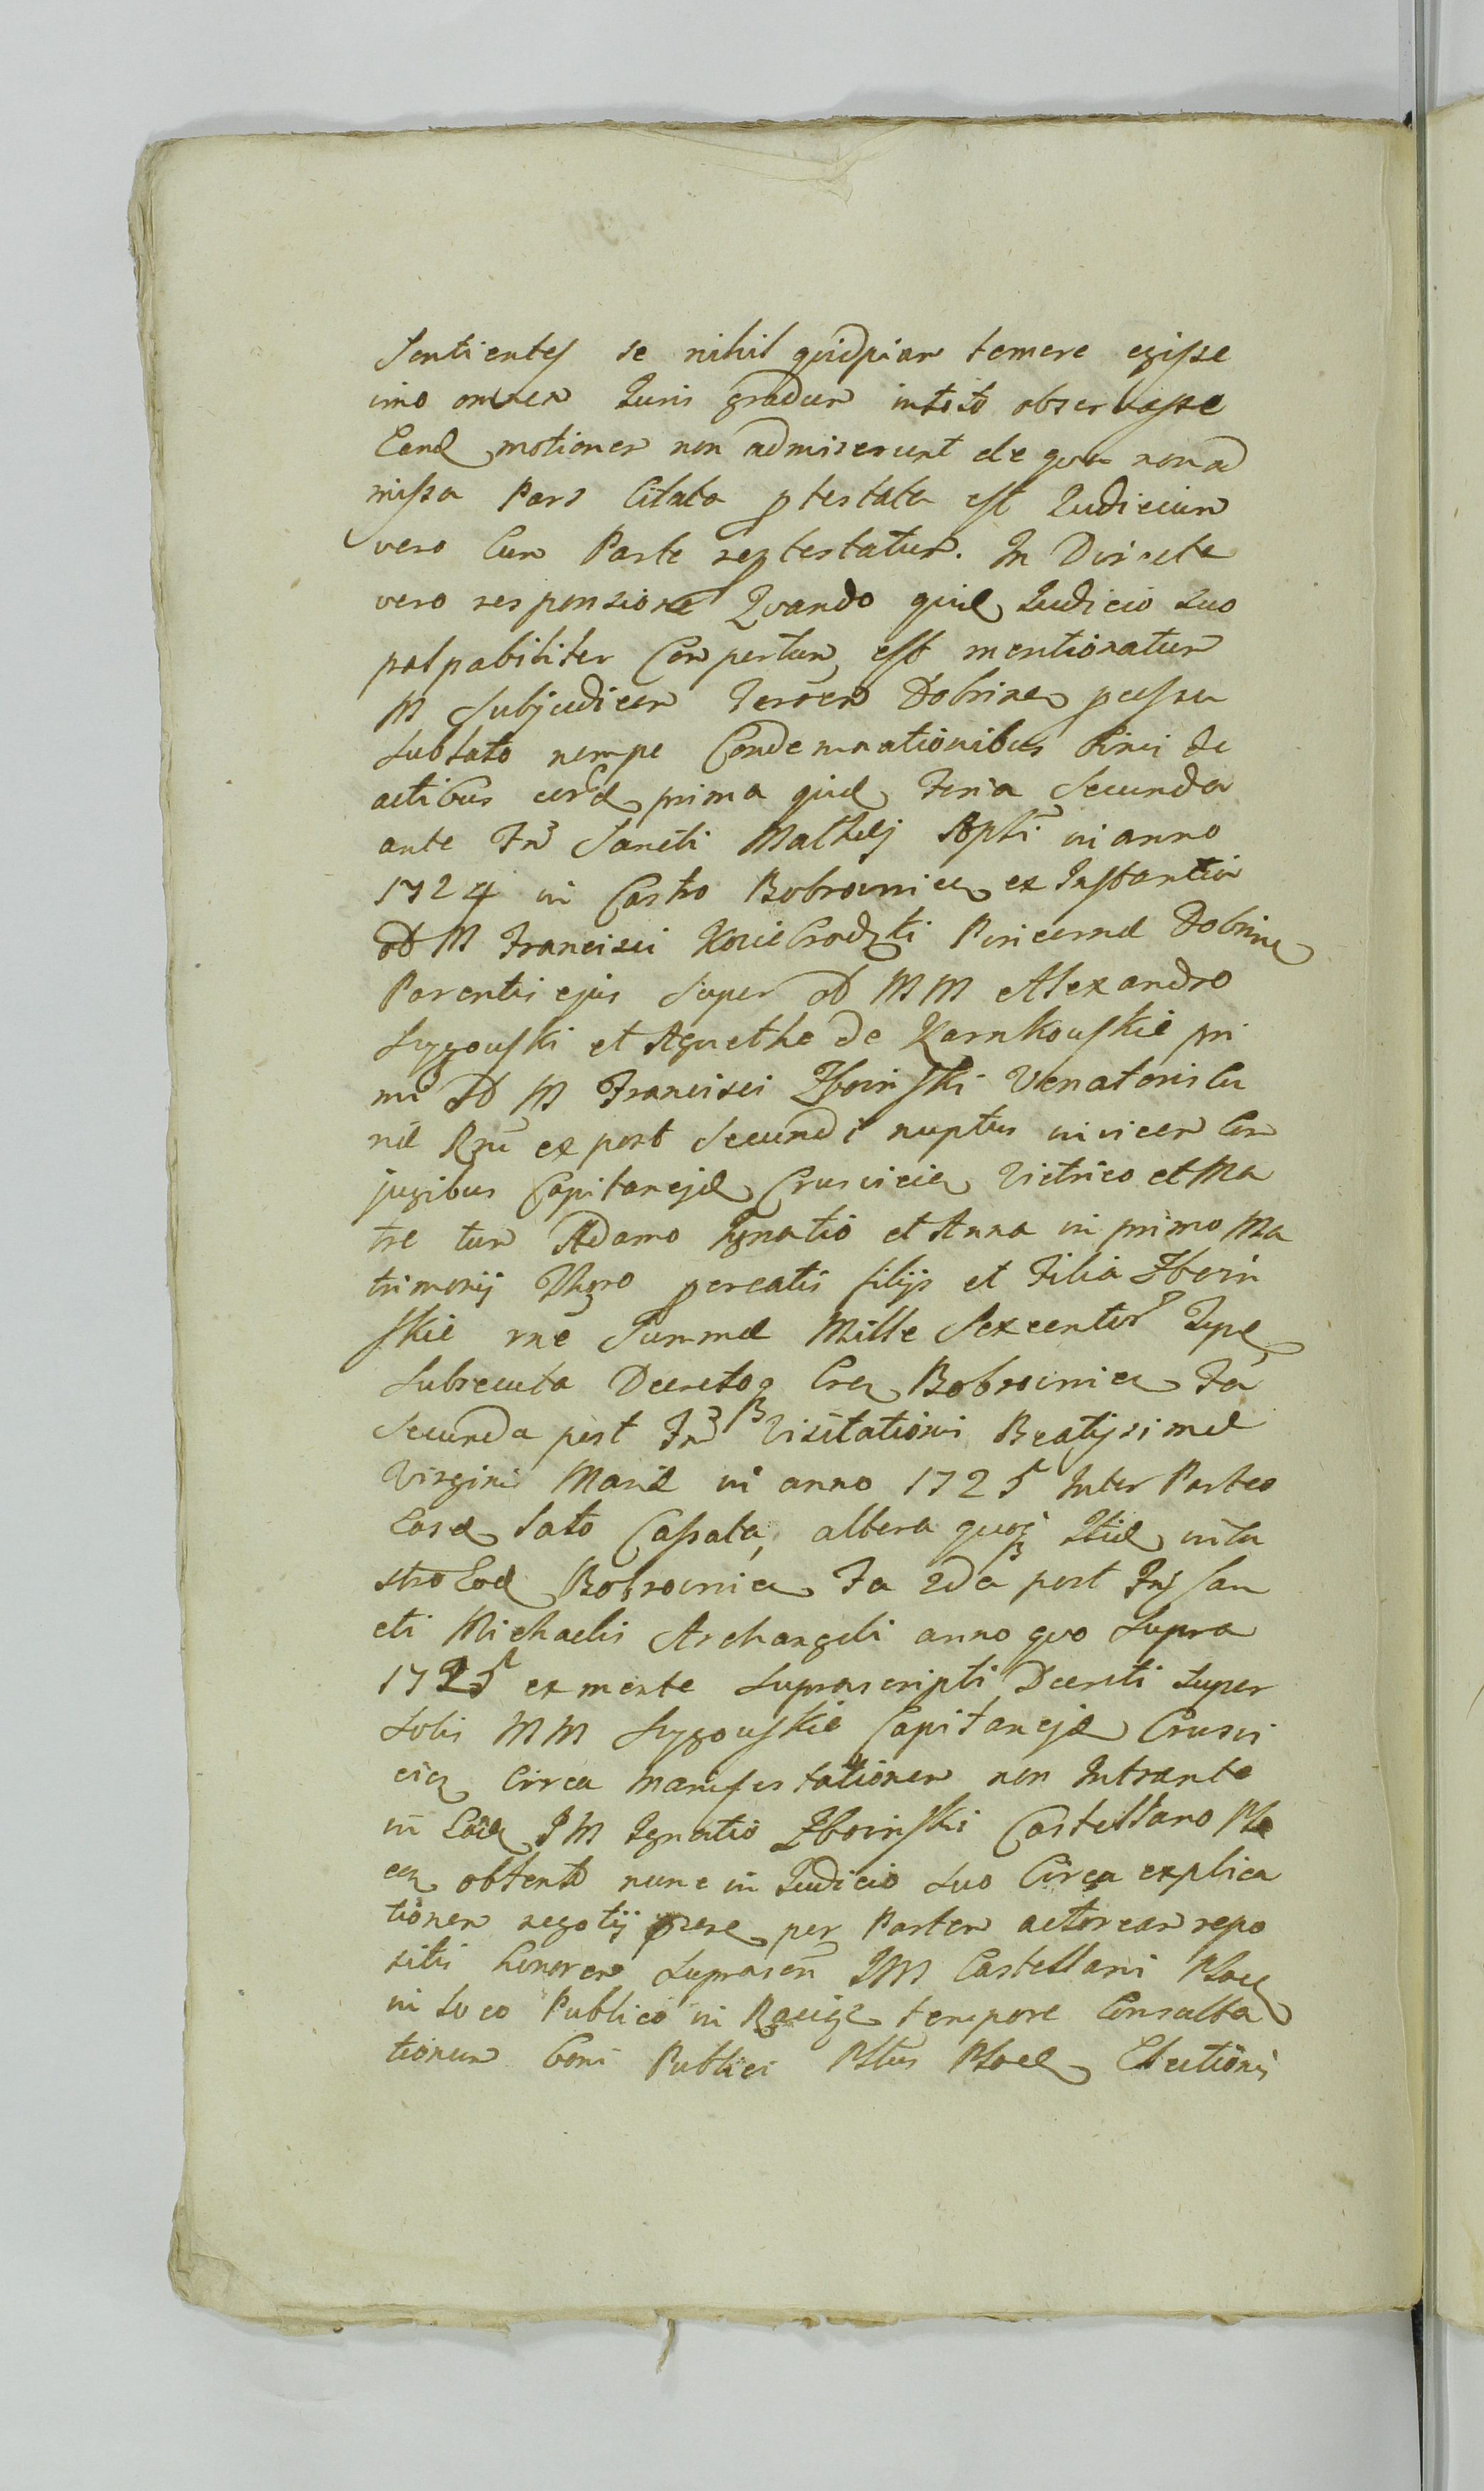 Sentientes se nihil quidpiam temere egisse
imo omnem Juris gradum intoto observasse
Eand motionem non admiserunt de qua non ad
missa Pars Citata ptestata est Judicium
vero Cum Parte reptestatur. In Directa
vero responsione Quando quid Judicio suo
palpabiliter Compertum est mentionatum
M Subjudicem Terren Dobrinen passu
sublato nempe Condemnationibus binis de
actibus prima quid Feria Secunda
ante Fm Sancti Mathej Apli in anno
1724 in Castro Bobrownicen ex Instantia
M Francisci Pincernæ Dobrinen
Parentis ejus super MM Alexandro
Lygowski et Agnethe de Karnkowskie pri
mi M Francisci Zboinski Venatoris Cu
riæ Rni ex post Secundi nuptus invicem Con
jugibus Capitanejæ Crusvicien Victrico et Ma
tre tum Adamo Ignatio et Anna in primo Ma
trimonij Thoro pcreatis filijs et Filia Zboin
skie rne Summæ Mille Sexcentor Type
subsecuta Decretoq Cren Bobrownicen Fa
Secunda post Fm Visitationis Beatissimæ
Virginis Mariæ in anno 1725 Inter Partes
Easd lato Cassata, altera quoq Itid in Ca
stro Eod Bobrownicen Fa 2da post Fm San
cti Michaelis Archangeli anno quo supra
1725 ex mente suprascripti Decreti super
solis MM Lygowskie Capitanejæ Crusvi
cien Circa manifestationem non Intrante
in Ead IM Ignatio Zboinski Castellano Plo
cen obtenta nunc in Judicio suo Circa explica
tionem negotij prese per Partem actoream repo
sitis honorem suprascri IM Castellani Plocen
in loco Publico in Raciąz tempore Consulta
tionum boni Publici Pltus Plocen Electionis